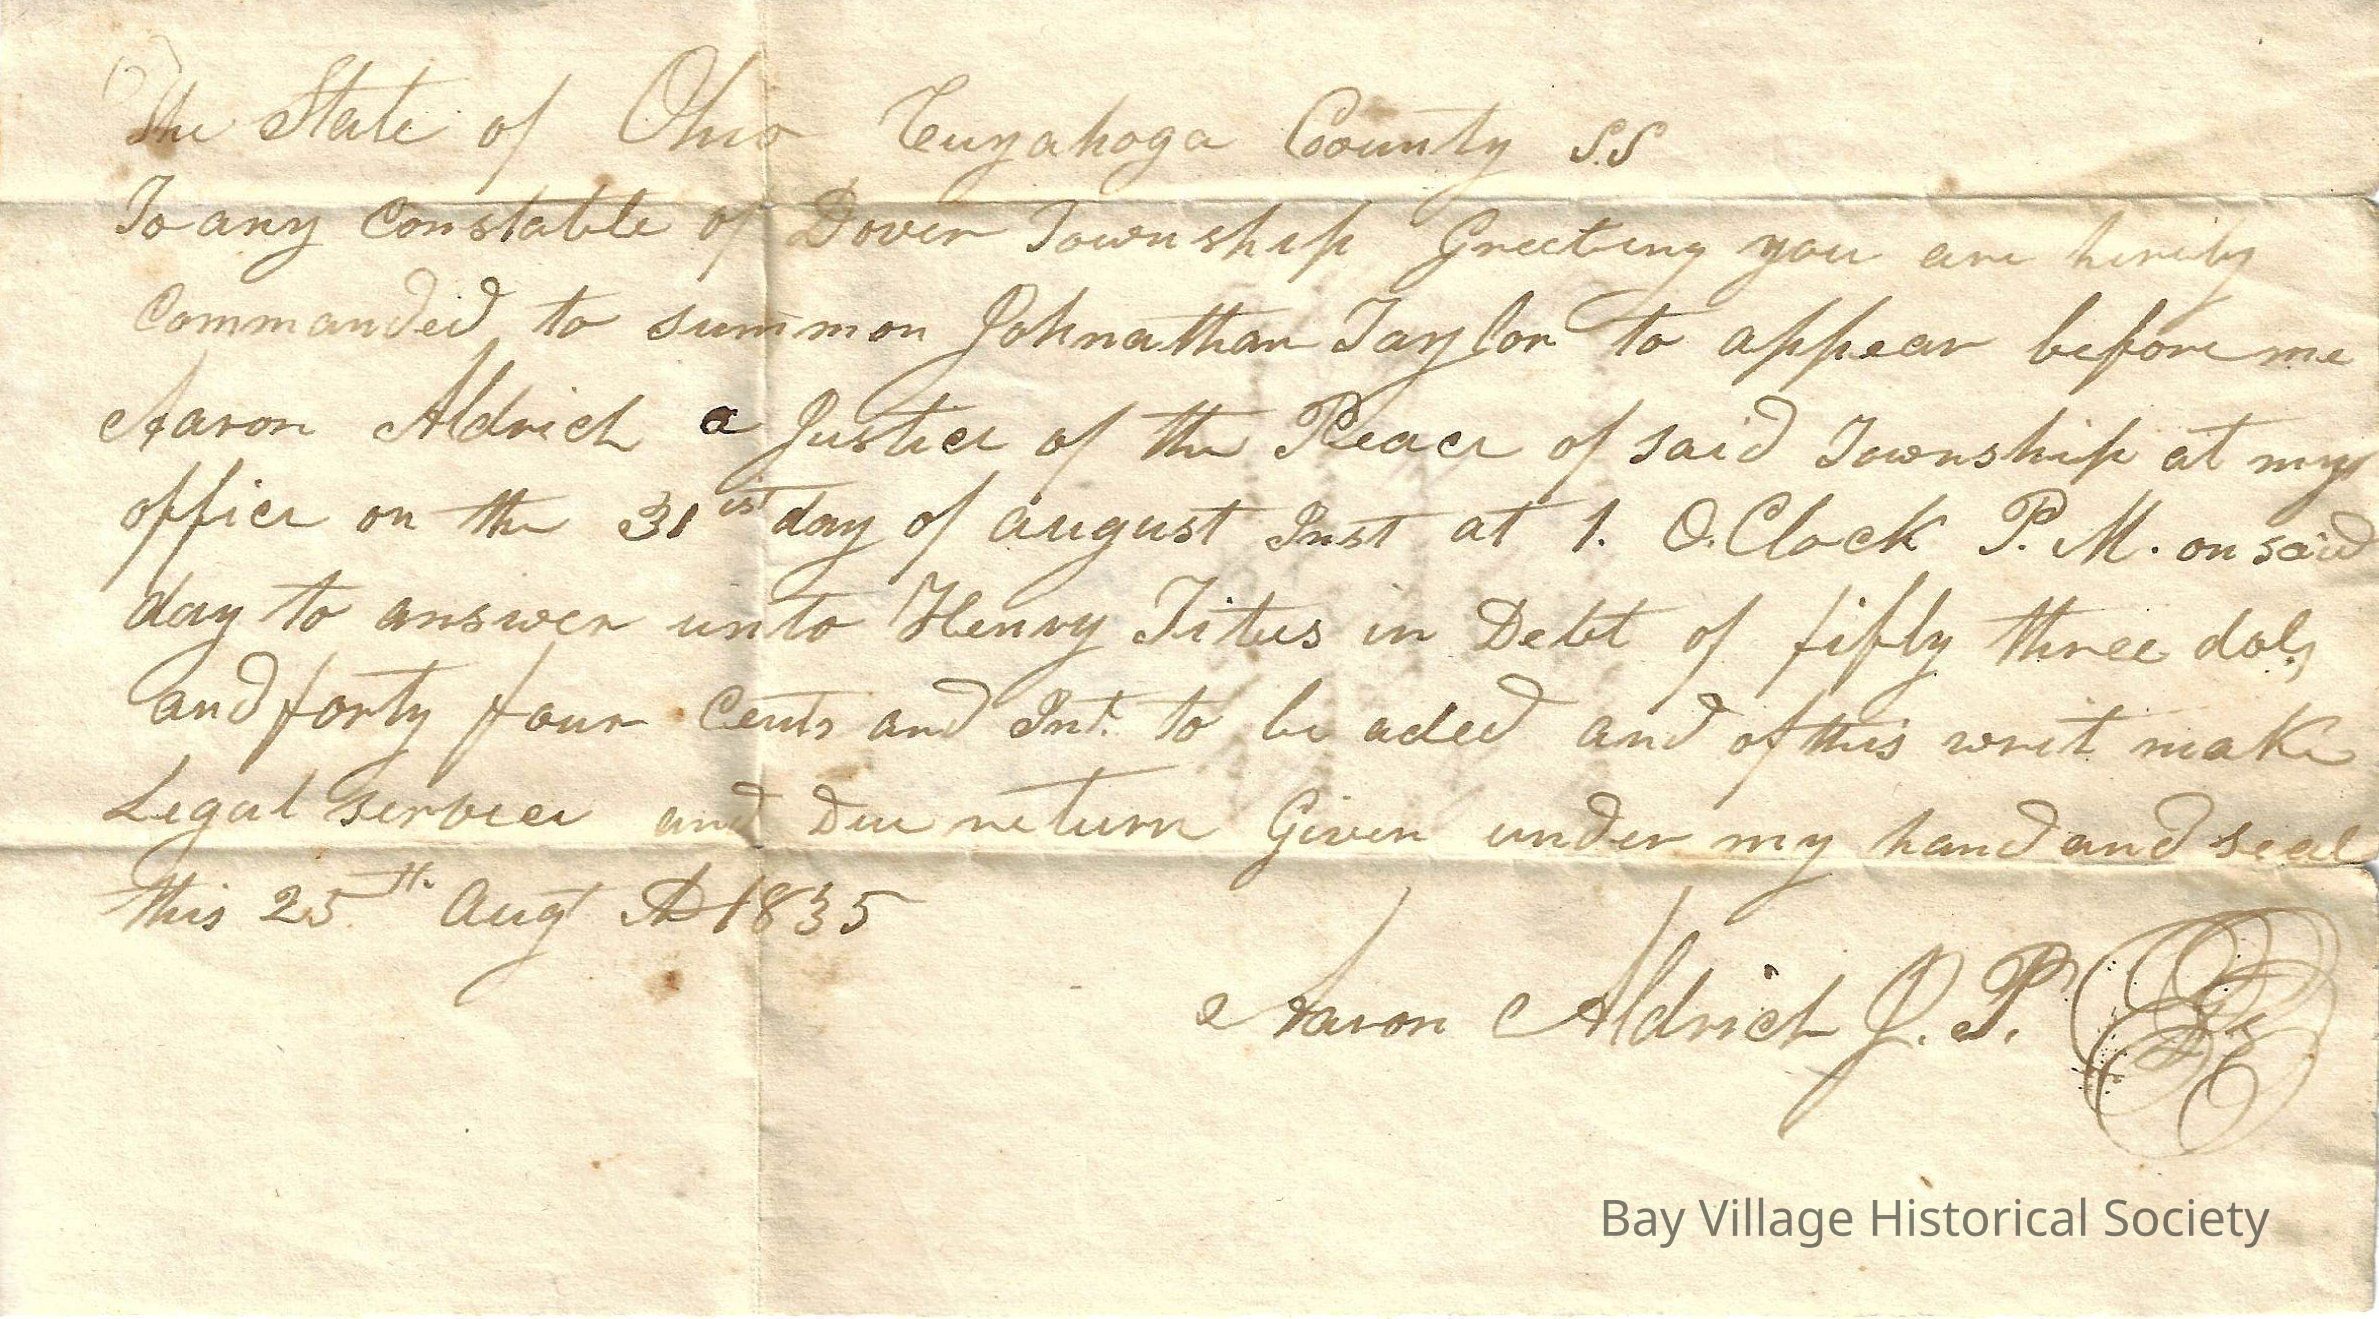 The State of Ohio Cuyahoga County S.S
To any Constable of Dover Township Greeting you are hereby
Commanded to summon Johnathan Taylor to appear before me
Aaron Aldrich a Justice of the Peace of said Township at my
office on the 31ist day of august Inst at 1. O.Clock P. M. on said
day to answer unto Henry Titus in Debt of fifty three dols,
and forty four Cents and Int. to be aded and of this writ make
Legal service and Due return Given under my hand and seal
this 25th. Augt AD 1835
Aaron Aldrich J. P.
Bay Village Historical Society